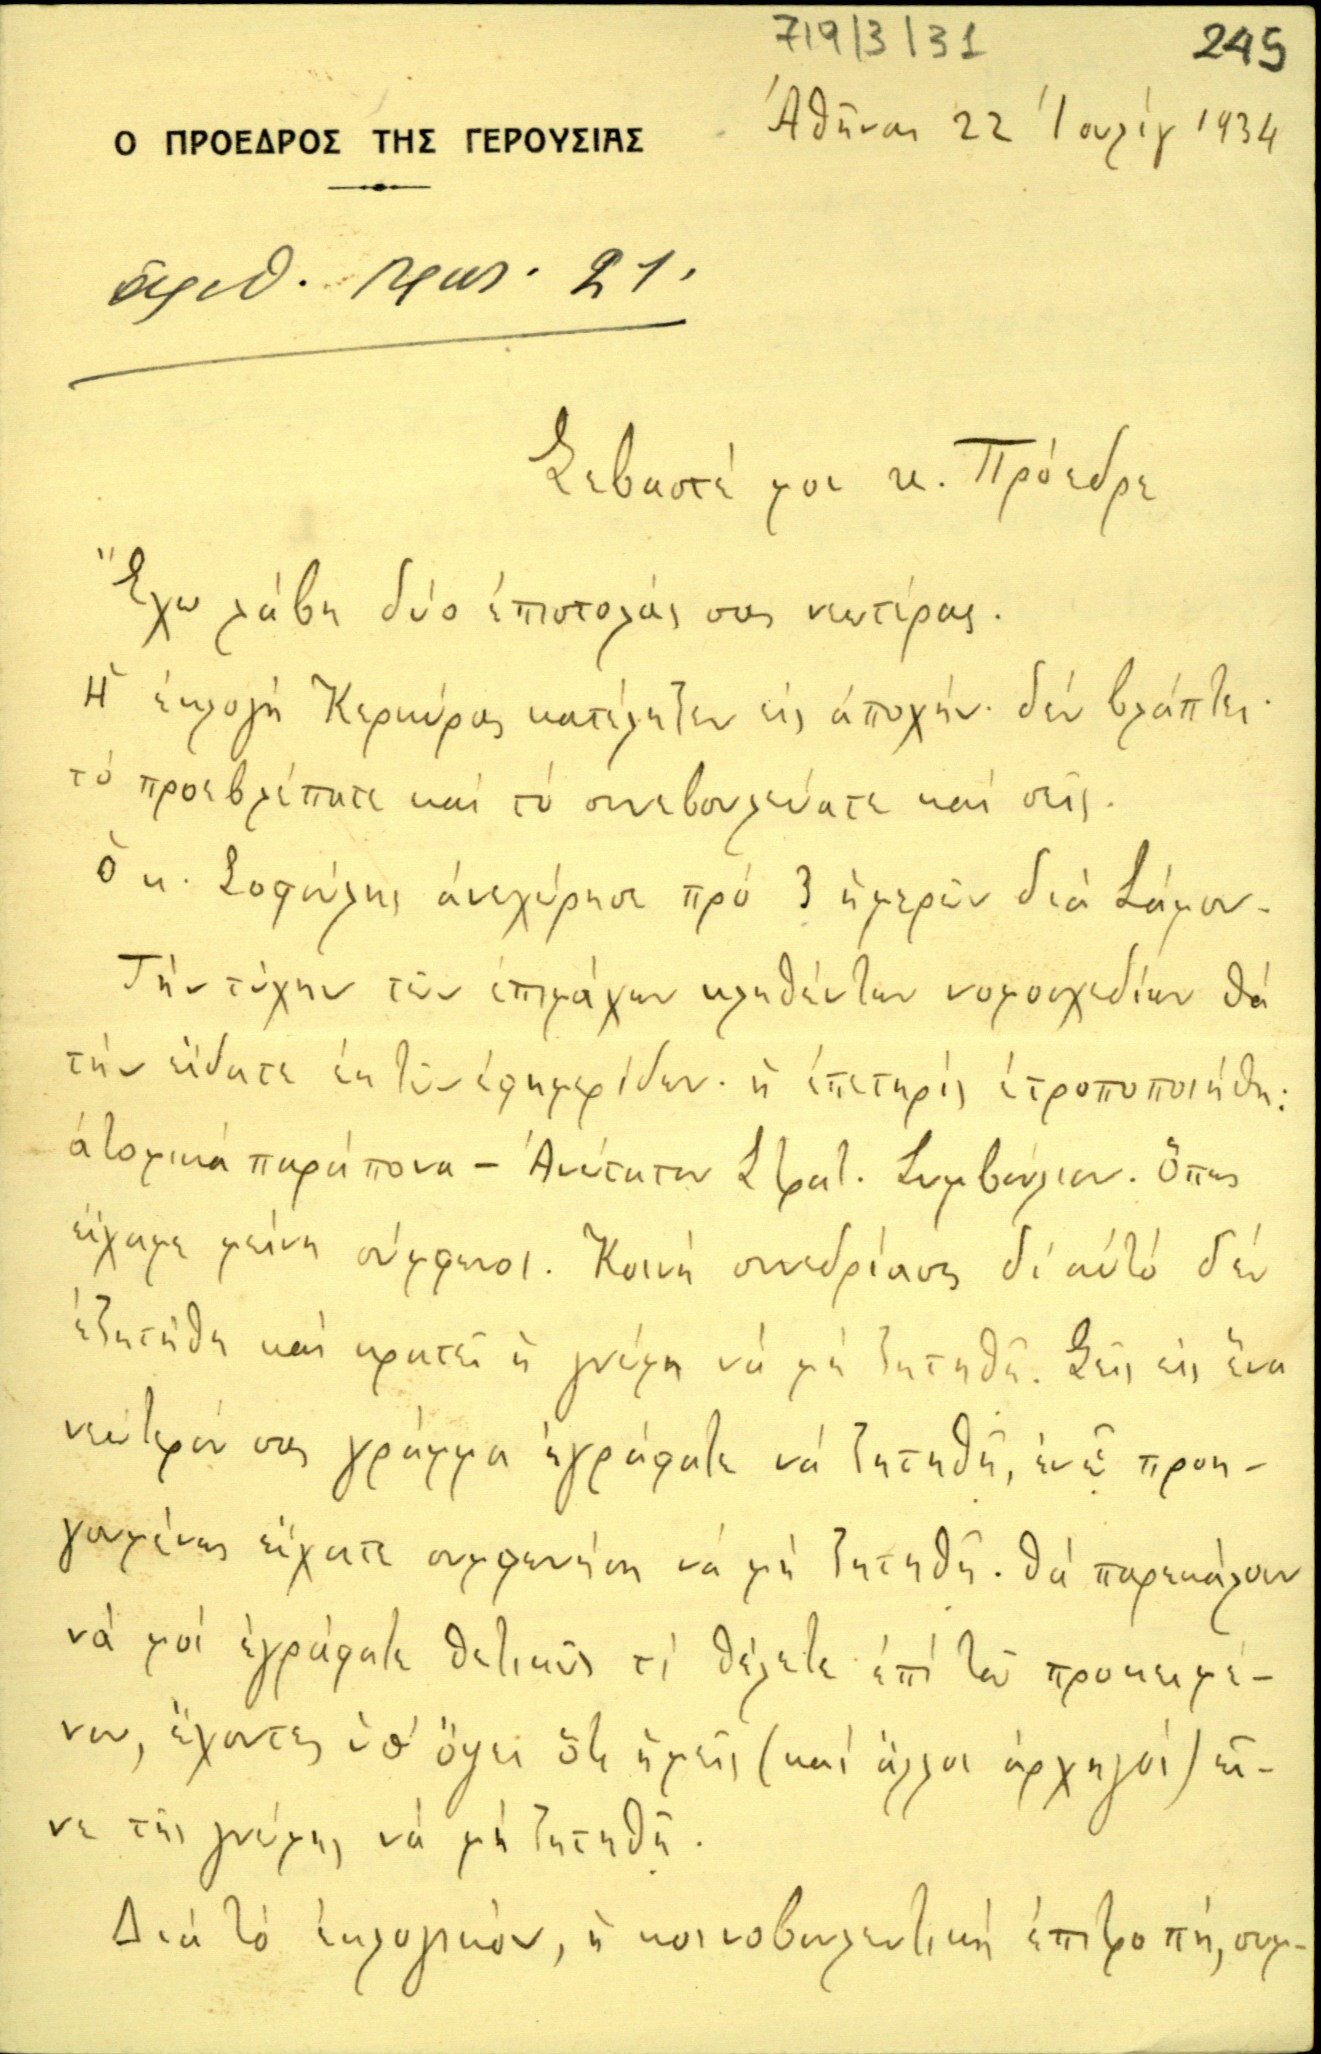 719/3/31
245
Ο ΠΡΟΕΔΡΟΣ ΤΗΣ ΓΕΡΟΥΣΙΑΣ
Ἀθῆναι 22 Ἰουλίου 1934
ἀριθ. πρωτ. 21.
Σεβαστέ μοι κ. Πρόεδρε
Ἔχω λάβη δύο ἐπιστολάς σας νεωτέρας.
Ἡ ἐκλογή Κερκύρας κατέληξεν εἰς ἀποχήν· δέν βλάπτει·
τό προεβλέπατε καί τό συνεβουλεύατε καί σεῖς.
Ὁ κ. Σοφούλης ἀνεχώρησε πρό 3 ἡμερῶν διά Σάμον-
Τήν τύχην τῶν ἐπιμάχων κληθέντων νομοσχεδίων θά
τήν εἴδατε ἐκ τῶν ἐφημερίδων· ἡ ἐπετηρίς ἐτροποποιήθη:
ἀτομικά παράπονα - Ἀνώτατον Στρατ. Συμβούλιον. Ὅπως
εἴχαμε μείνη σύμφωνοι. Κοινή συνεδρίασις δι' αὐτό δέν
ἐζητήθη καί κρατεῖ ἡ γνώμη νά μή ζητηθῇ. Σεῖς εἰς ἕνα
νεώτερόν σας γράμμα ἐγράφατε νά ζητηθῇ, ἐνῷ προη-
γουμένως εἴχατε συμφωνήση νά μή ζητηθῇ. Θά παρεκάλουν
νά μοί ἐγράφατε θετικῶς τί θέλετε ἐπί τοῦ προκειμέ-
νου, ἔχοντες ὑπ' ὄψει ὅτι ἡμεῖς (καί ἄλλοι ἀρχηγοί) εἴ-
νε τῆς γνώμης νά μή ζητηθῇ.
Διά τό ἐκλογικόν, ἡ κοινοβουλευτική ἐπιτροπή, συμ-